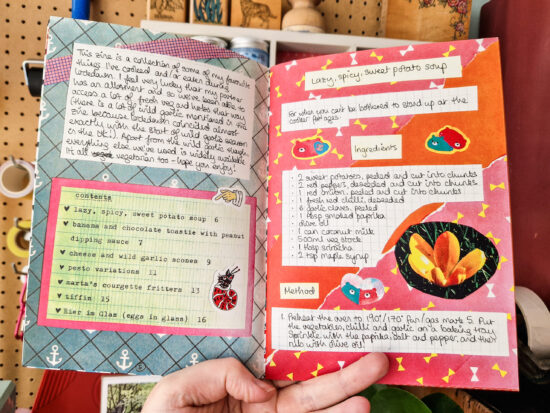 This zine is a collection of some of my favourite
things I've cooked and/or eaten during
lockdown. I feel very lucky that my partner
has an allotment and so we've been able to
access a lot of fresh veg and herbs that way
(there is a lot of wild garlic mentioned in this
zine because lockdown coincided almost
exactly with the start of wild garlic season
in the UK). Apart from the wild garlic though
everything else we've used is widely available
it all vegetarian too - hope you enjoy!
contents
♥ lazy, spicy, sweet potato soup 6
♥ banana and chocolate toastie with peanut
dipping sauce 7
♥ cheese and wild garlic scones 9
♥ pesto variations 11
♥ marta's courgette fritters 13
♥ tiffin 15
♥ Eier im Glas (eggs in glass) 16
Lazy, spicy, sweet potato soup
For when you can't be bothered to stand up at the
cooker for ages.
Ingredients
· 2 sweet potatoes, peeled and cut into chunks
· 2 red peppers, deseeded and cut into chunks
· 1 red onion, peeled and cut into chunks
· 1 fresh red chilli, deseeded
· 6 garlic cloves, peeled
· 1 tbsp smoked paprika
· olive oil
· 1 can coconut milk
· 500ml veg stock
· 1 tbsp sriracha
· 2 tsp maple syrup
Method
1. Preheat the oven to 190°/170° fan/gas mark 5. Put
the vegetables, chilli and garlic on a baking tray.
Sprinkle with the paprika, salt and pepper, and then
rub with olive oil.